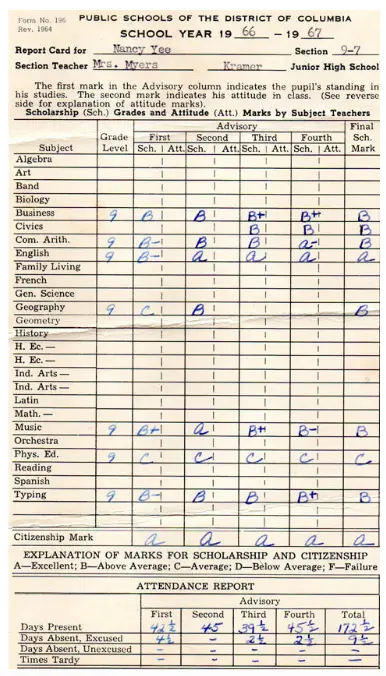 Form No. 196 PUBLIC SCHOOLS OF THE DISTRICT OF COLUMBIA
Rev. 1964 SCHOOL YEAR 19 66 — 19 67
Report Card for Nancy Yee Section 9-7
Section Teacher Mrs. Myers Kramer Junior High School
The first mark in the Advisory column indicates the pupil's standing in
his studies. The second mark indicates his attitude in class. (See reverse
side for explanation of attitude marks).
Scholarship (Sch.) Grades and Attitude (Att.) Marks by Subject Teachers
Advisory Final
Grade First Second Third Fourth Sch.
Subject Level Sch. Att. Sch. Att. Sch. Att. Sch. Att. Mark
Algebra
Art
Band
Biology
Business 9 B B B+ B+ B
Civics B B B
Com. Arith. 9 B- B B a- B
English 9 B- a a a a
Family Living
French
Gen. Science
Geography 9 C B B
Geometry
History
H. Ec. —
H. Ec. —
Ind. Arts —
Ind. Arts —
Latin
Math. —
Music 9 B+ a B+ B- B
Orchestra
Phys. Ed. 9 C C C C C
Reading
Spanish
Typing 9 B- B B B+ B
Citizenship Mark a a a a a
EXPLANATION OF MARKS FOR SCHOLARSHIP AND CITIZENSHIP
A—Excellent; B—Above Average; C—Average; D—Below Average; F—Failure
ATTENDANCE REPORT
Advisory
First Second Third Fourth Total
Days Present 42½ 45 39½ 45½ 172½
Days Absent, Excused 4½ - 2½ 2½ 9½
Days Absent, Unexcused - - - - -
Times Tardy - - - - -